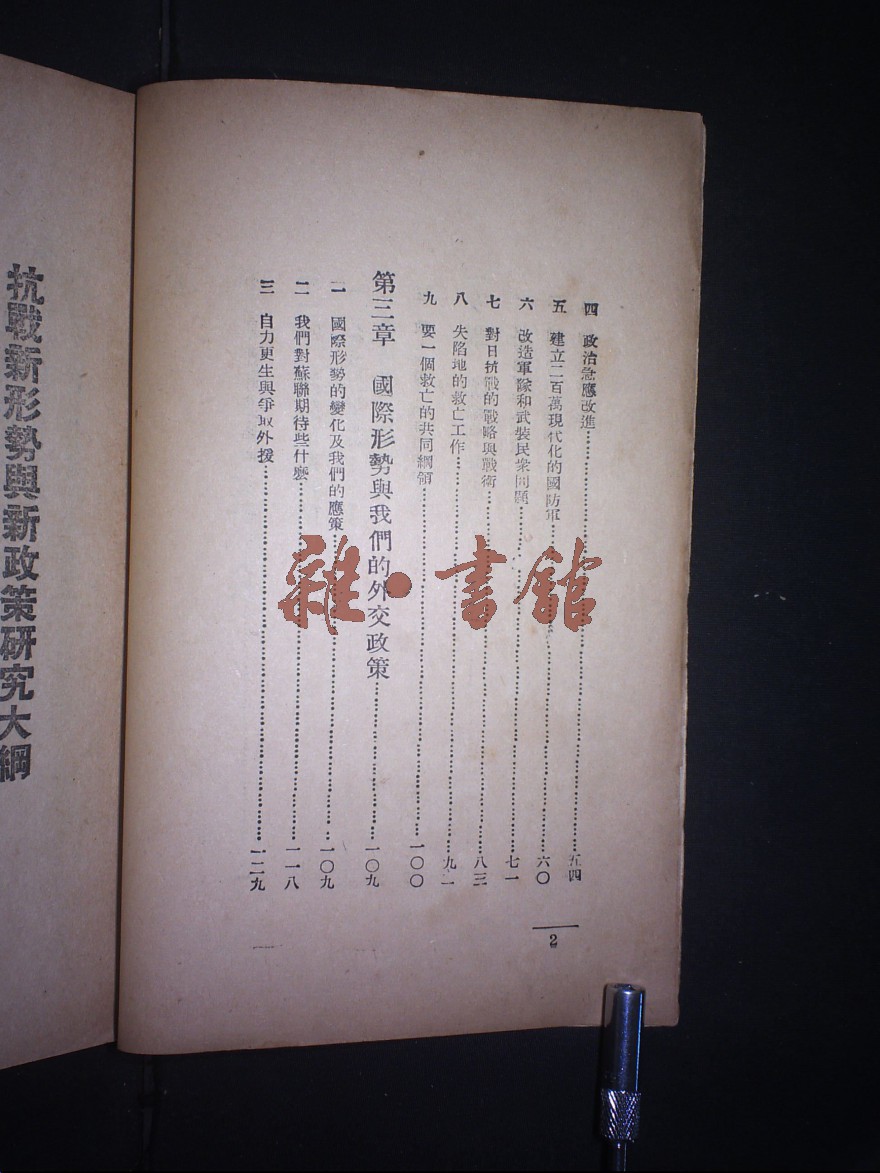 四　政治急應改進……五四
五　建立二百萬現代化的國防軍……六〇
六　改造軍隊和武裝民衆問題……七一
七　對日抗戰的戰略與戰術……八三
八　失陷地的救亡工作……九一
九　要一個救亡的共同綱領……一〇〇
第三章　國際形勢與我們的外交政策……一〇九
一　國際形勢的變化及我們的應策……一〇九
二　我們對蘇聯期待些什麽……一一八
三　自力更生與爭取外援……一二九
2
抗戰新形勢與新政策研究大綱
雜·書館